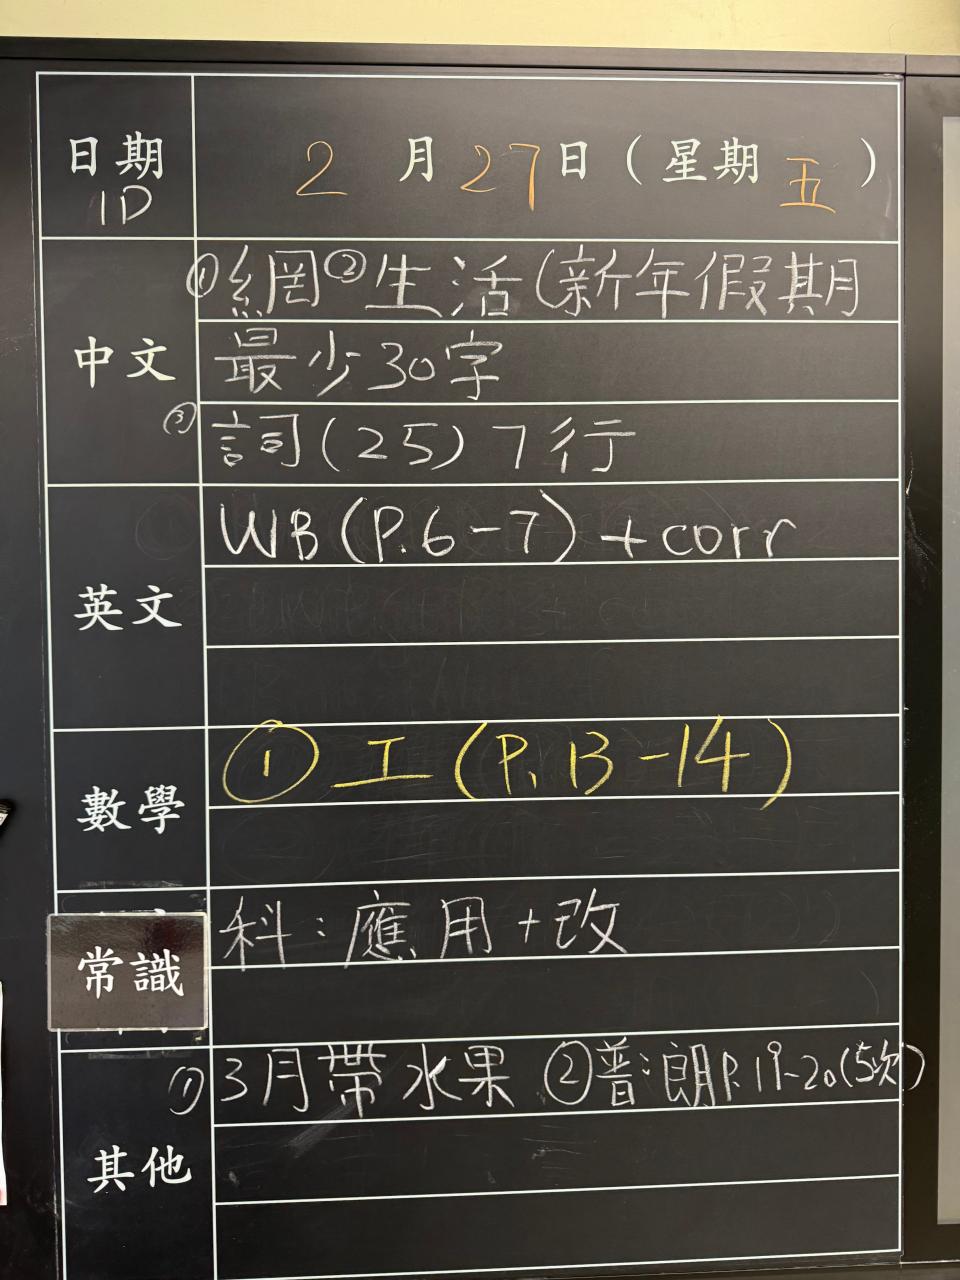 日期 2月27日(星期五)
1D
中文 ①網②生活(新年假期
最少30字
③詞(25)7行
英文 WB(P.6-7)+corr
數學 ①工(P.13-14)
常識 科:應用+改
其他 ①3月帶水果 ②普:朗P.19-20(5次)